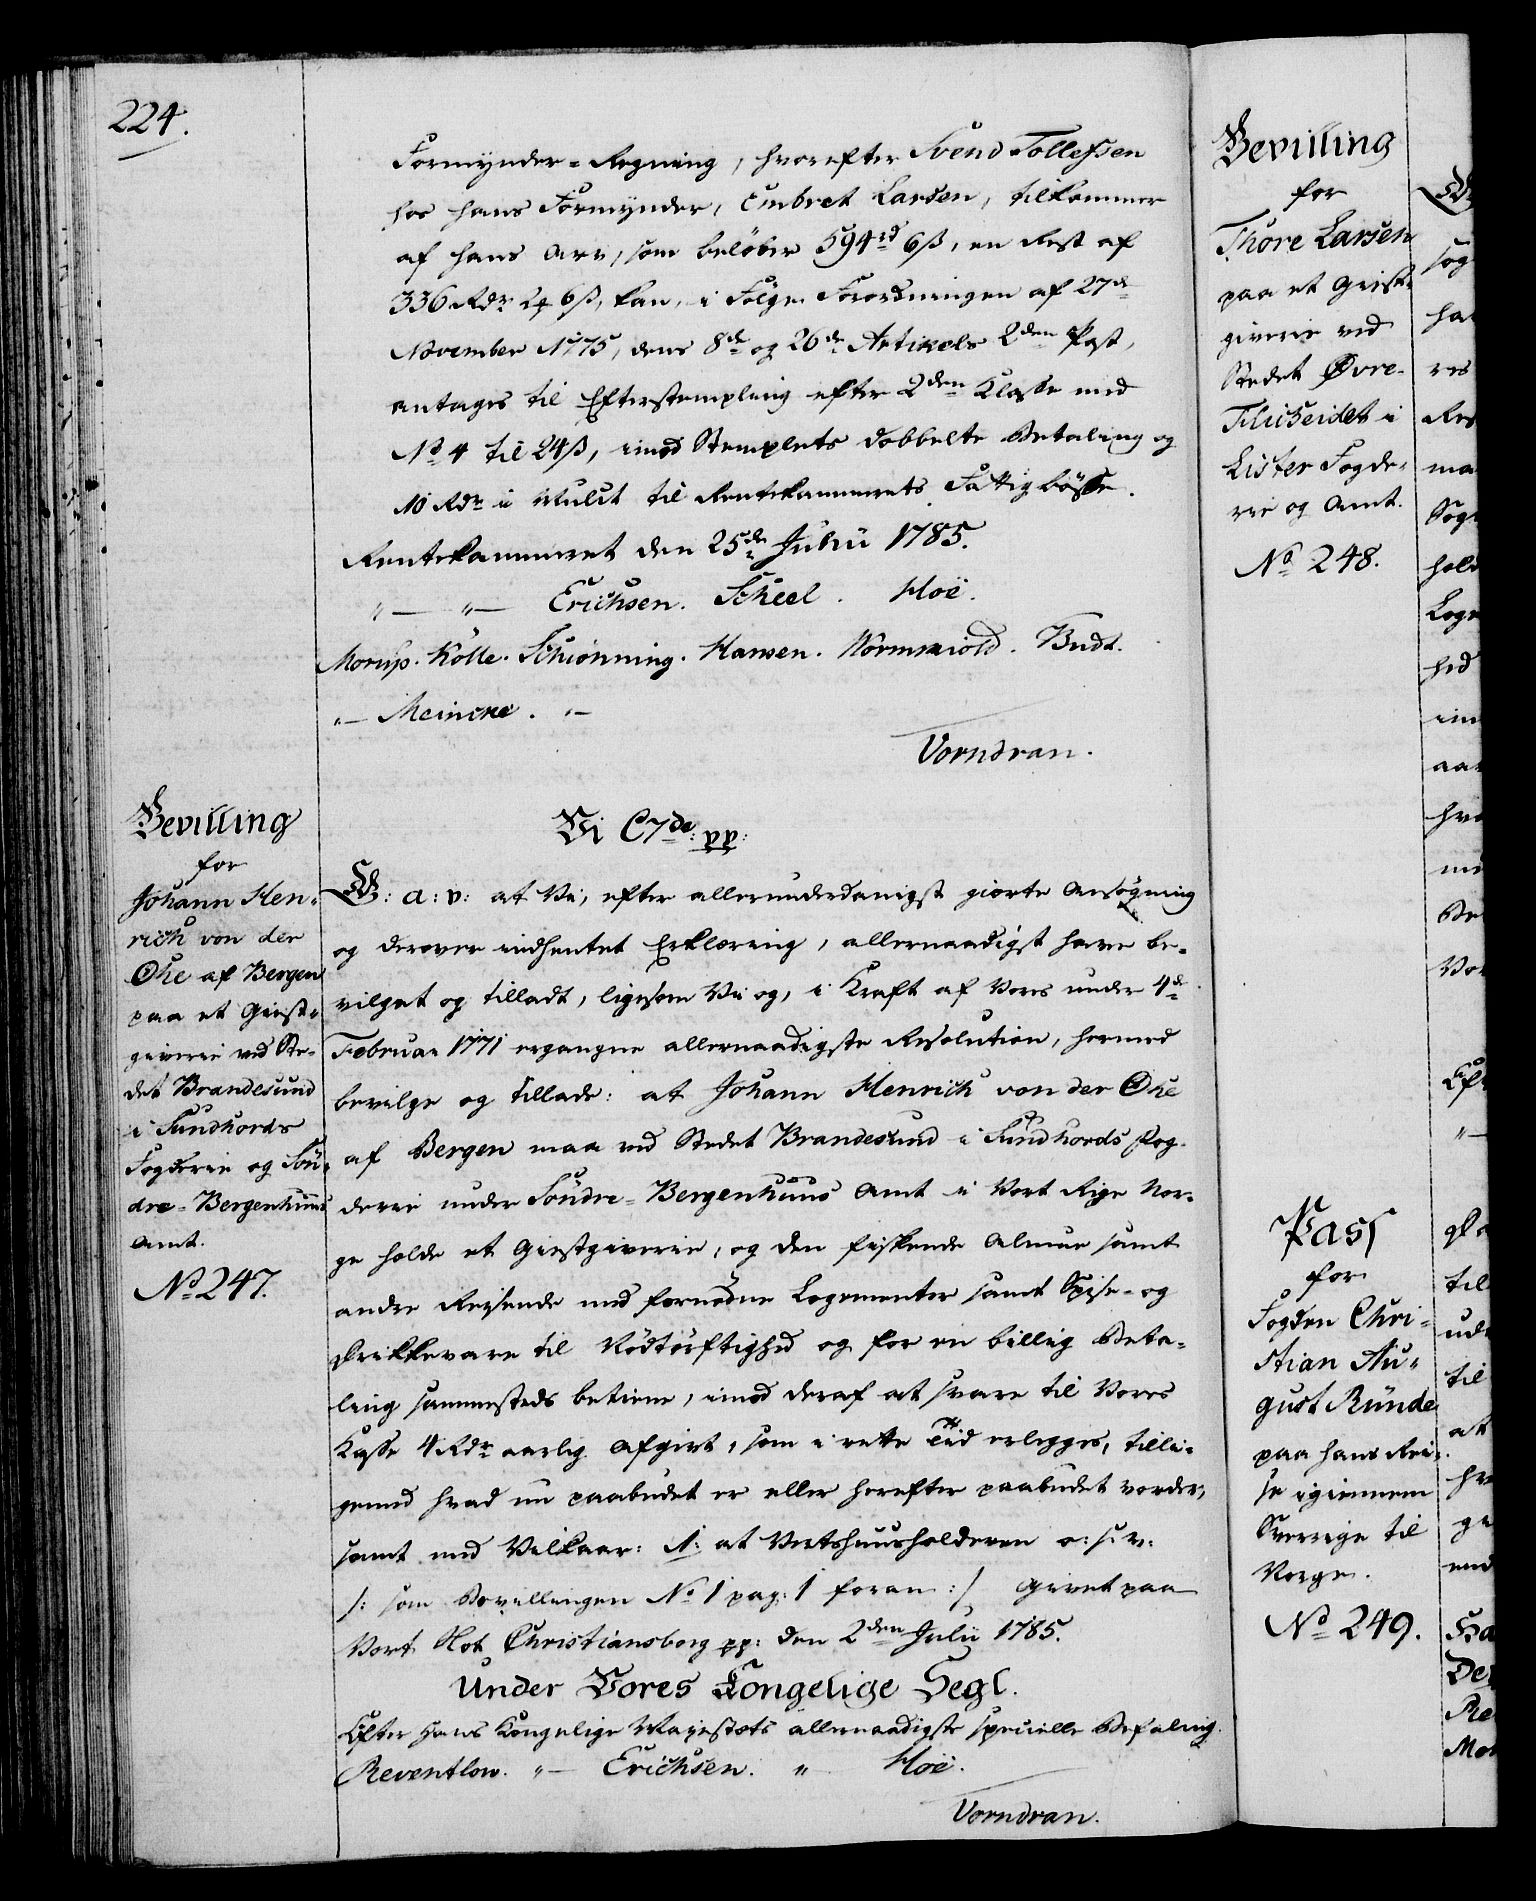 224.
Formynder-Regning, hvorefter Svend Tollefsen
hos hans Formynder, Embret Larsen, tilkommer
af hans Arv, som beløber 594 rd 6 ß, en Rest af
336 Rdr 2 ꝶ 6 ß, kan, i Følge Forordningen af 27de
November 1775, dens 8de og 26de Artikels 2den Post,
antages til Efterstempling efter 2den Klasse med
No 4 til 24 ß, imod Stemplets dobbelte Betaling og
10 Rdr i Mulct til Rentekammerets Fattigbøsse.
Rentekammeret den 25de Julii 1785.
"— "— Erichsen. Scheel. Hoë.
Morup. Kölle. Schiønning. Hansen. Wormskiold. Budt.
"— Meincke. "—
Vorndran.
Bevilling
for
Johann Hen-
rich von der
Ohe af Bergen
paa et Giest-
giverie ved Ste-
det Brandesund
i Sundhords
Fogderie og Søn-
dre-Bergenhuus
Amt.
No 247.
Vi C7de: pp:
G: a: v: at Vi, efter allerunderdanigst giorte Ansøgning
og derover indhentet Erklæring, allernaadigst have be-
vilget og tilladt, ligesom Vi og, i Kraft af Vores under 4de
Februar 1771 ergangne allernaadigste Resolution, hermed
bevilge og tillade: at Johann Henrich von der Ohe
af Bergen maa ved Stedet Brandesund i Sundhords Fog-
derie under Søndre-Bergenhuus Amt i Vort Rige Nor-
ge holde et Giestgiverie, og den fiskende Almue samt
andre Reisende med fornødne Logementer samt Spise- og
Drikkevare til Nødtørftighed og for en billig Beta-
ling sammesteds betiene, imod deraf at svare til Vores
Kasse 4 Rdr aarlig Afgivt, som i rette Tiid erlegges, tilli-
gemed hvad nu paabudet er eller herefter paabudet vorder,
samt med Vilkaar: 1: at Vertshuusholderen o: s: v:
/: som Bevillingen No 1 pag: 1 foran :/ Givet paa
Vort Slot Christiansborg pp: den 2den Julii 1785.
Under Vores Kongelige Segl.
Efter Hans Kongelige Majestæts allernaadigste specielle Befaling.
Reventlow. "— Erichsen. " Hoë.
Vorndran.
Bevilling
for
Thore Larsen
paa et Giest-
giverie ved
Stedet Øvre-
i
Lister Fogde-
rie og Amt.
No 248.
Pass
for
Fogden Chri-
stian Au-
gust Runde
paa hans Rei-
se igiennem
Sverrige til
Norge.
No 249.